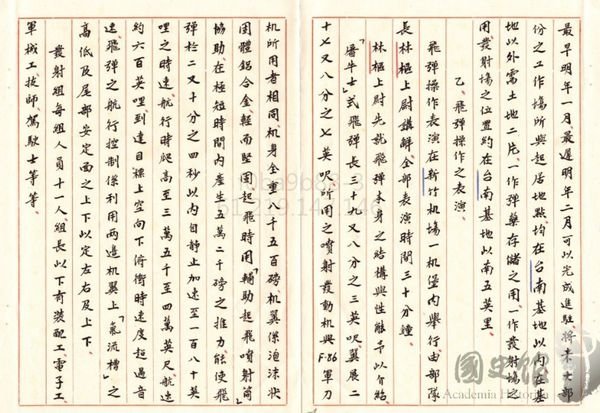 最早明年一月最遲明年二月可以完成進駐將來大部
份之工作場所與起居地點均在台南基地以內在基
地以外需土地二片一作彈藥存儲之用一作發射場之
用發射場之位置約在台南基地以南五英里、
乙、飛彈操作之表演、
飛彈操作表演在新竹機場一机堡內舉行由部隊
長林樞上尉講解全部表演時間三十分鐘、
林樞上尉先就飛彈本身之結構與性能予以介紹
「屠牛士」式飛彈長三十九又八分之三英呎翼展二
十七又八分之七英呎所用之噴射發動机與F-86軍刀
机所用者相同机身全重八千五百磅、机翼係泡沫狀
固體鋁合金、輕而堅固起飛時用「輔助起飛噴射筒」
協助在極短時間內產生五萬二千磅之推力能使飛
彈於二又十分之四秒以內自靜止加速至一百八十英
哩之時速、航行時能高至三萬五千至四萬英尺、航速
約六百英哩到達目標上空向下俯衝時速度超過音
速、飛彈之航行控制係利用兩邊机翼上「氣流槽」之
高低及尾部安定面之上下以定左右及上下、
發射組每組人員十一人、組長以下有裝配工電子工
軍械工技師、駕駛士等等、
國史館
Academia Historica